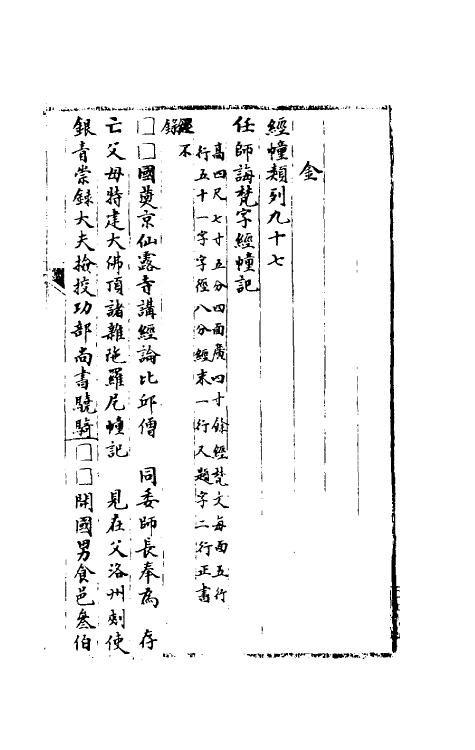 金
經幢類列九十七
任師誨梵字經幢記
高四尺七寸五分四面廣四寸餘經梵文每面五行
行五十一字字徑八分經末一行又題字二行正書
經不
錄
□□國燕京仙露寺講經論比邱僧 同委師長奉為 存
亡父母特建大佛頂諸雜陁羅尼幢記 見在父洛州刺使
銀青崇錄大夫撿挍功部尚書驍騎□□開國男食邑叄伯